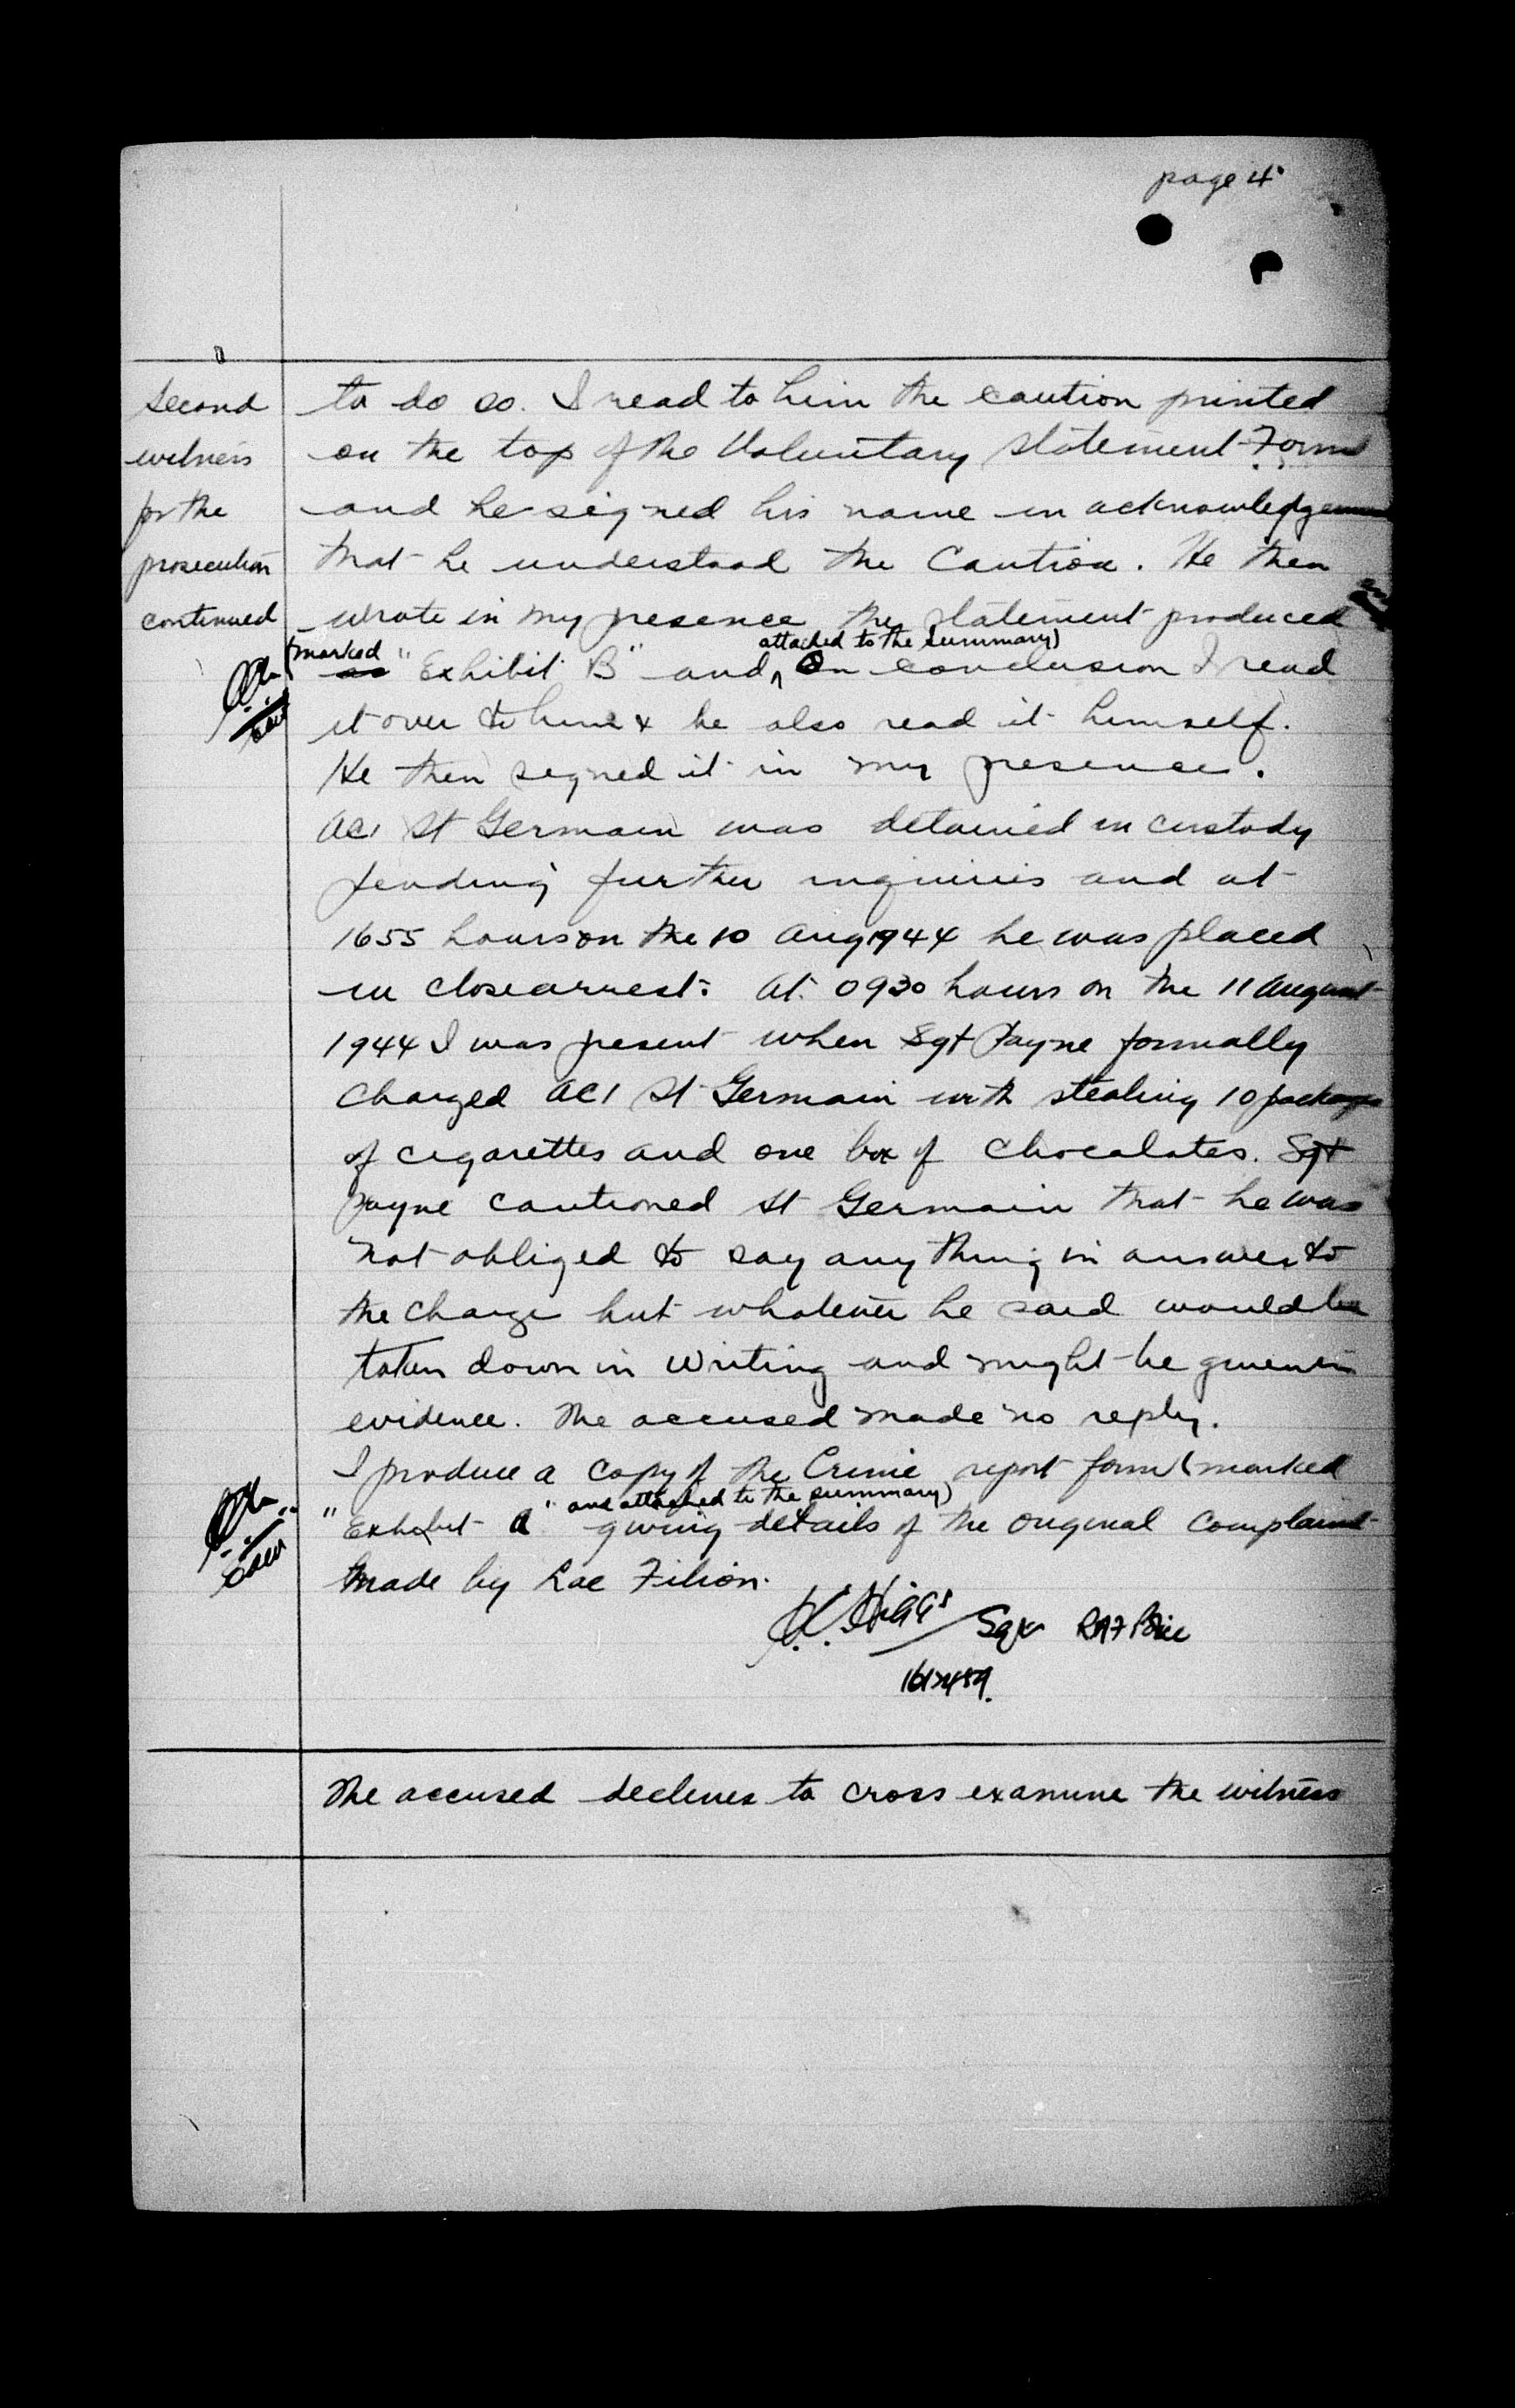 page 4
second
witness
for the
prosecution
continued
to do so. I read to him the caution printed
on the top of the Voluntary Statement Form
and he signed his name in acknowledgement
that he understood the Caution. He then
wrote in my presence the statement produced
(marked attached to the summary)
as "Exhibit B" and, On conclusion I read
it over to him & he also read it himself.
He then signed it in my presence.
AC1 St Germain was detained in custody
pending further inquiries and at
1655 hours on the 10 Aug 1944 he was placed
in close arrest. At 0930 hours on the 11 August
1944 I was present when Sgt Payne formally
charged AC1 St Germain with stealing 10 packages
of cigarettes and one box of chocolates. Sgt
Payne cautioned St Germain that he was
not obliged to say anything in answer to
the charge but whatever he said would be
taken down in writing and might be given in
evidence. The accused made no reply.
I produce a copy of the Crime report form (marked
and attached to the summary)
"Exhibit A" giving details of the original complaint
made by Lac Filion.
K. Higgs Sgt RAF Police
The accused declines to cross examine the witness